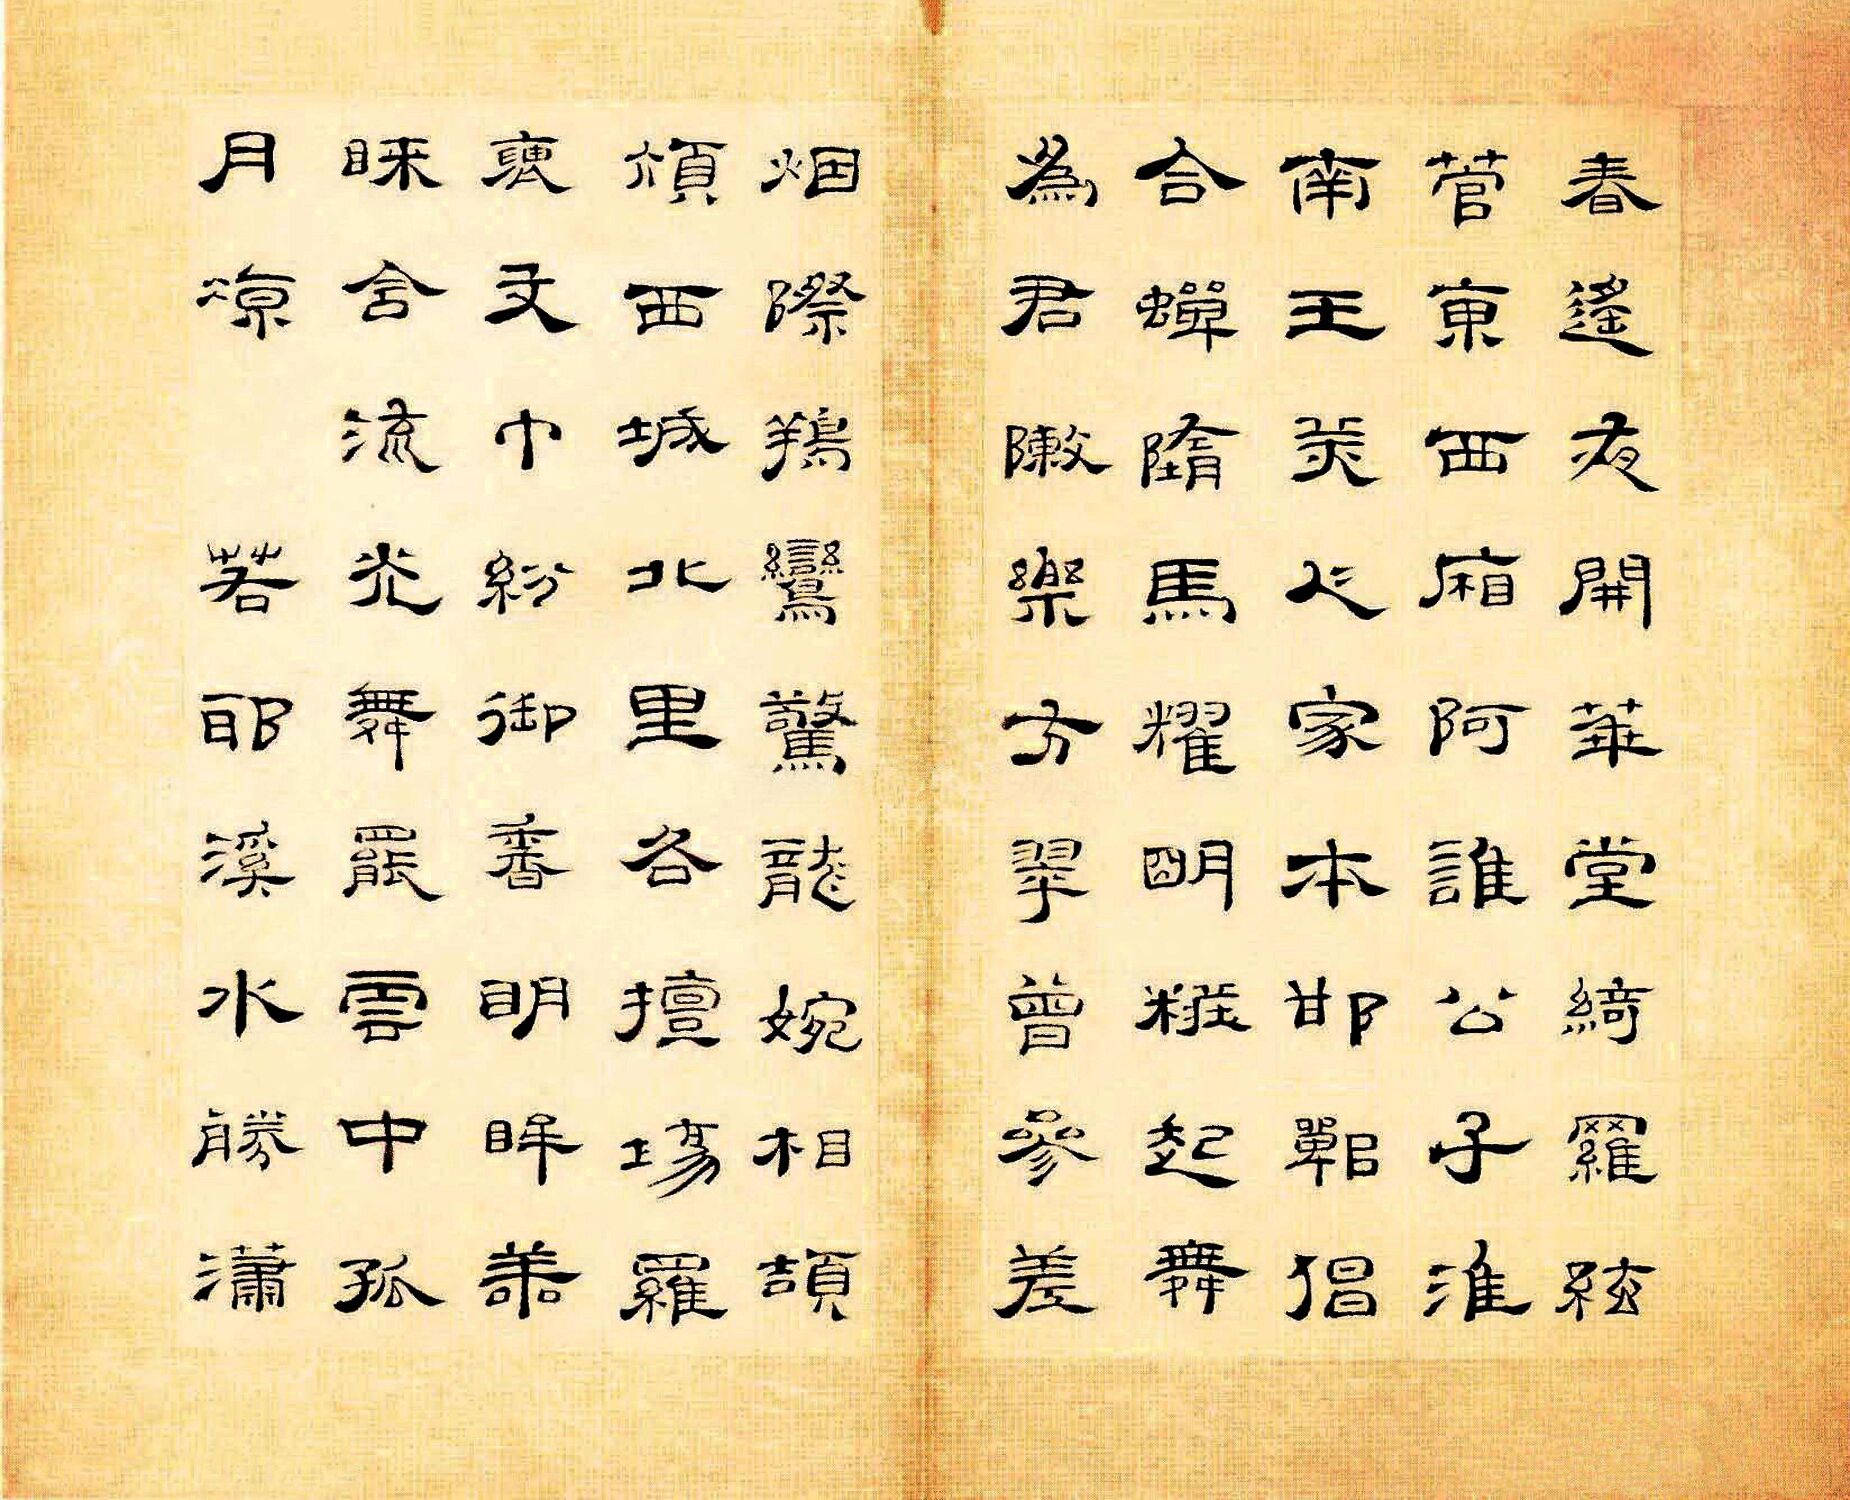 春遙夜開華堂綺羅絃
管東西廂阿誰公子淮
南王美人家本邯鄲倡
合蟬墮馬耀明糚起舞
為君敶樂方翠曾參差
烟際鴹鸞驚龍婉相頡
頏西城北里各擅場羅
褏文巾紛御香明眸善
睞含流光舞罷雲中孤
月涼 若耶溪水勝瀟